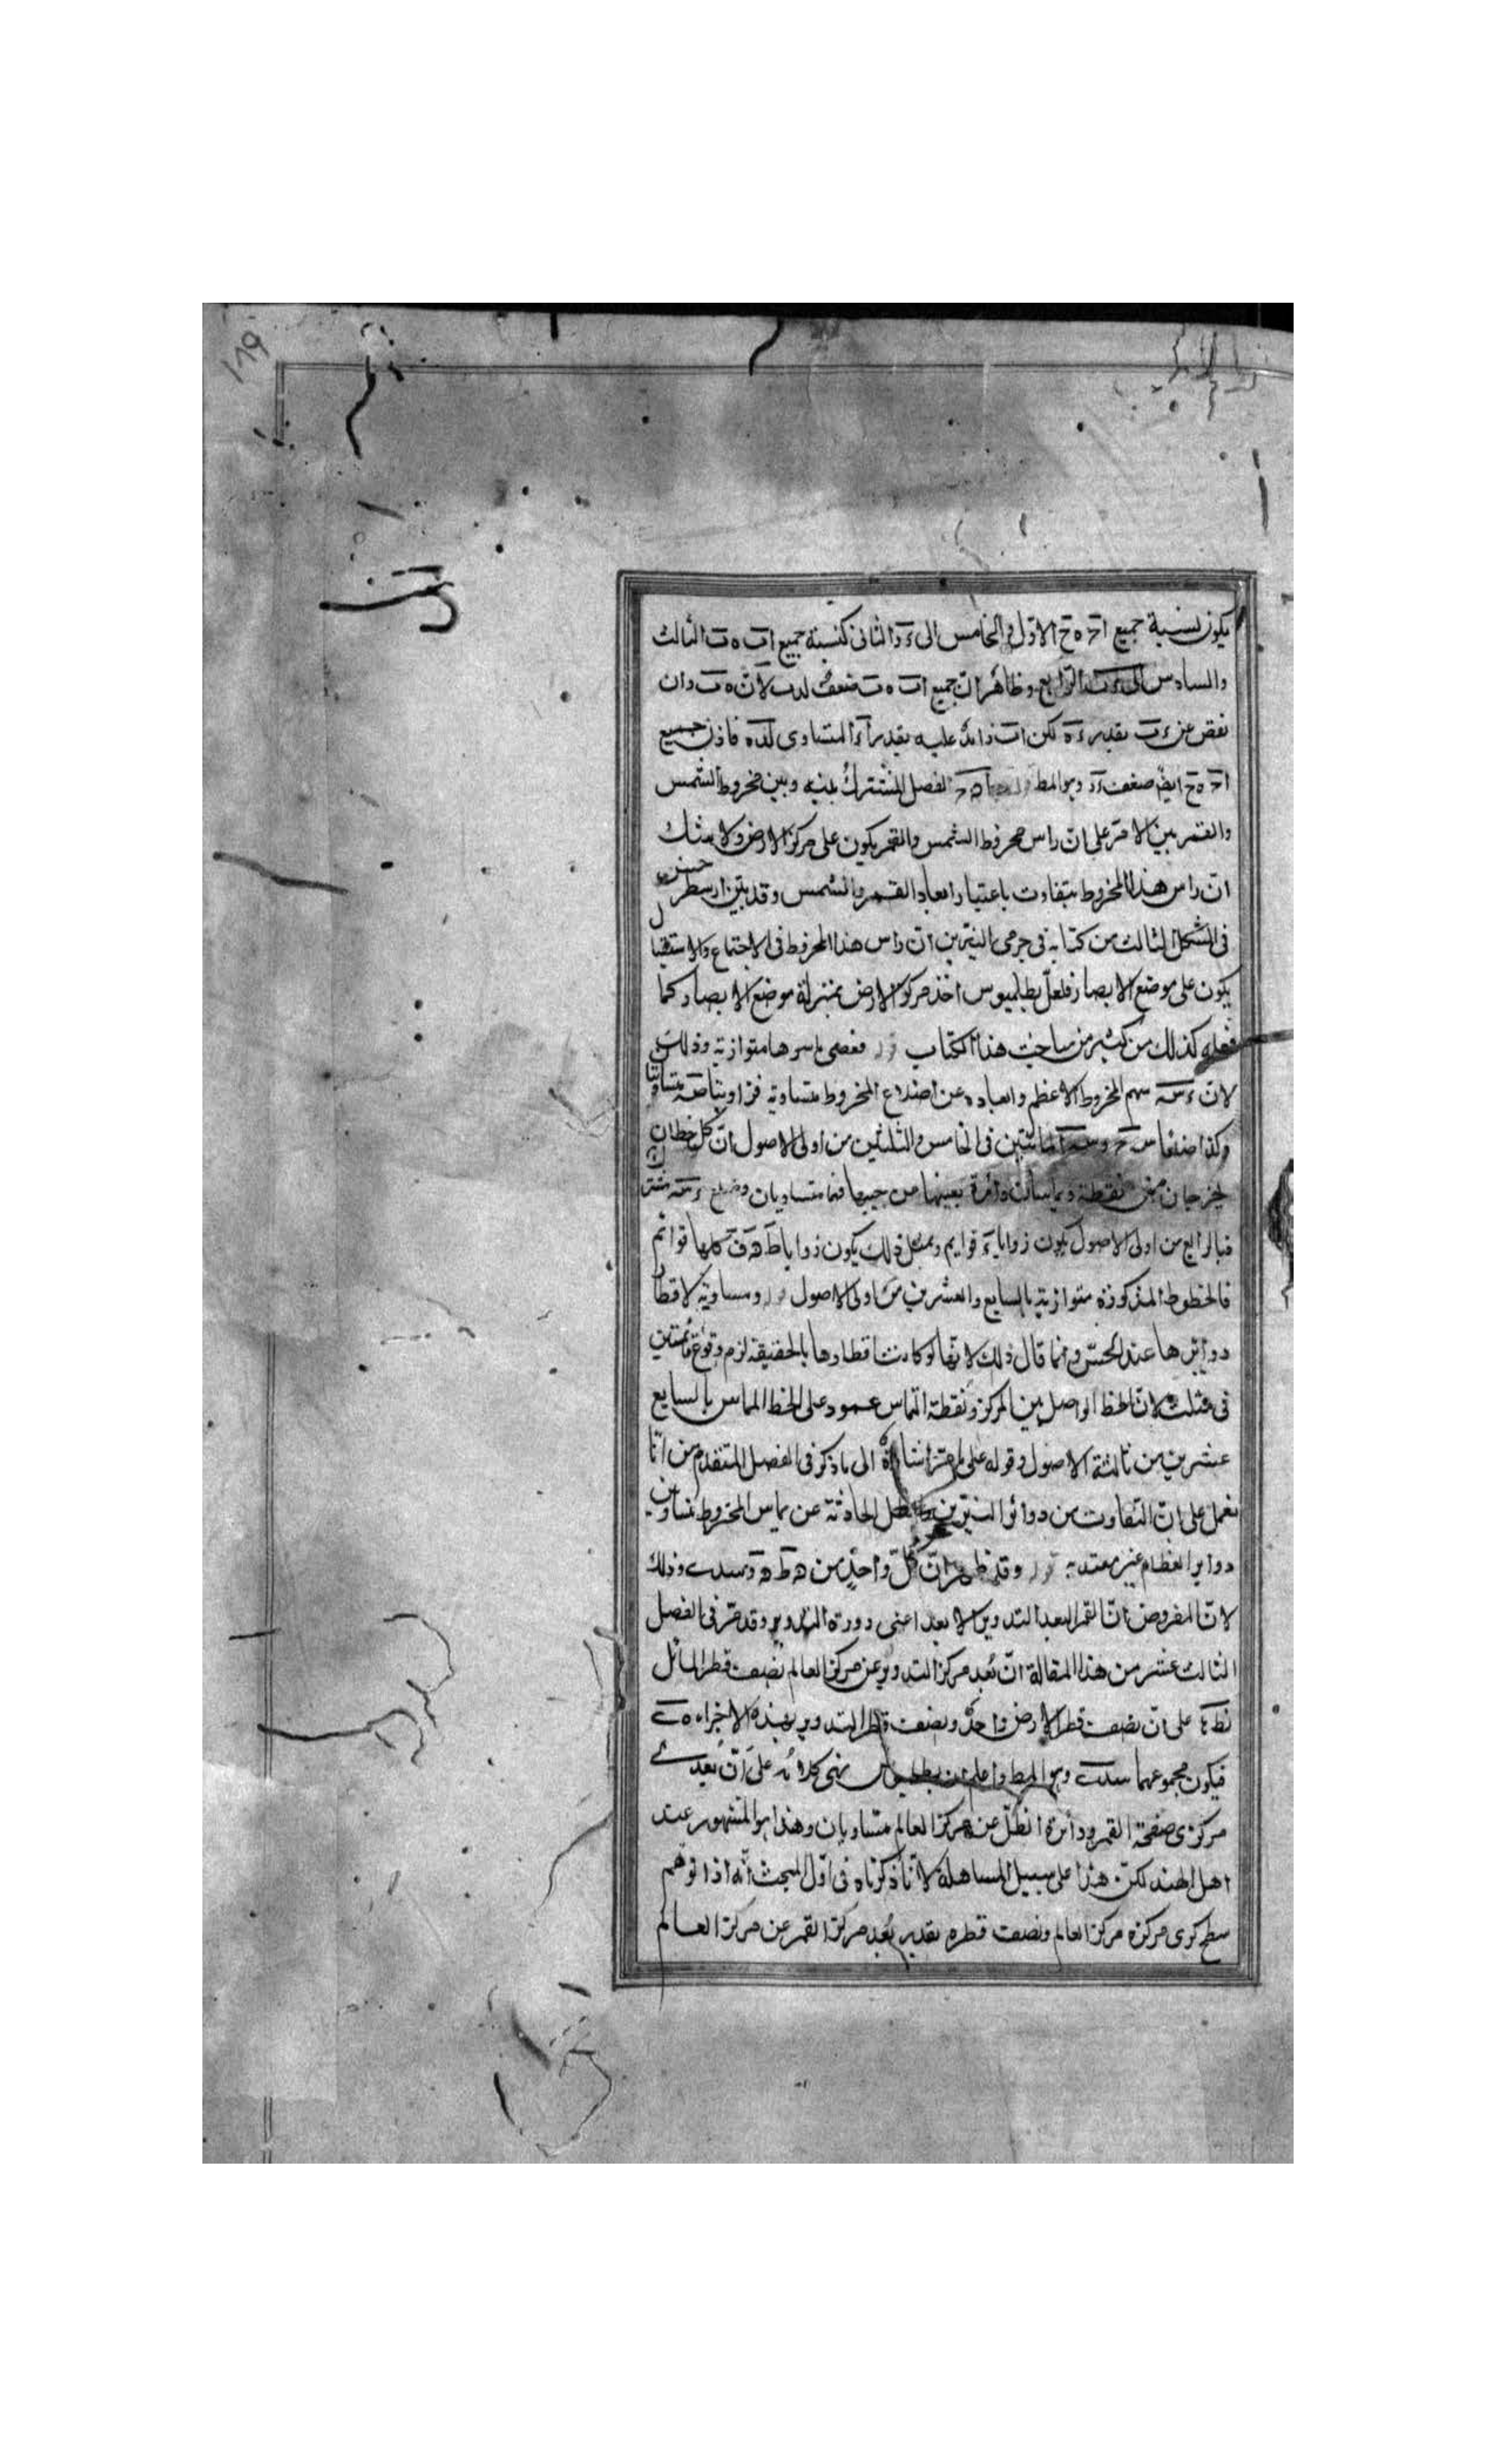 ١٧٩
يكون نسبة جميع اح ه ح الاول والخامس الى ء د الثانى كنسبة جميع اب ه ب الثالث
والسادس الى الرابع وظاهر ان جميع اب ه ب ضعف لان ه ب وان
نقص عن ء ب بقدر ء ه لكن اب زائد عليه بقدر اء المتساوى فاذن جميع
اح ه ح ايضً ضعف ء د وهو المط الفصل المشترك بينه وبين مخروط الشمس
والقمر على ان راس مخروط الشمس والقمر يكون على مركز الارض ولا شك
ان راس هذا المخروط يتفاوت باعتبار ابعاد القمر والشمس وقد بين ارسطرخس
فى الشكل الثالث من كتابه فى جرمى النيرين ان راس هذا المخروط فى الاجتماع والاستقبال
يكون على موضع الابصار فلعل بطلميوس اخذ مركز الارض بمنزلة موضع الابصار كما
فعله كذلك من كثير من مباحث هذا الكتاب قوله فهى باسرها متوازية وذلك
لان سهم المخروط الاعظم وابعاده عن اضلاع المخروط متساوية
وكذا ضلعا فى الخامس والثلثين من اولى الاصول ان كل خطان
يخرجان من نقطة ويماسان دائرة بعينها عن جنبيها فهما متساويان وضلع
فبالرابع من اولى الاصول يكون زوايا قوايم وبمثل ذلك يكون زوايا كلها قوائم
فالخطوط المذكورة متوازية بالسابع والعشرين من اولى الاصول قوله ومساوية لاقطار
دوايرها عند الحس وانما قال ذلك لانها لو كانت اقطارها بالحقيقة لزم وقوع قائمتين
فى مثلث لان الخط الواصل بين المركز ونقطة التماس عمود على الخط المماس بالسابع
عشرين من ثالثة الاصول وقوله على ما مر اشارة الى ما ذكر فى الفصل المتقدم من انا
نعمل على ان التفاوت من دوائر النيرين والظل الحادثة عن تماس المخروط
دوايرا لعظام غير معتد به قوله وقد ظهر ان كل واحد من وذلك
لان المفروض ان القمر البعد التدوير الابعد اعنى دورة التدوير وقد مر فى الفصل
الثالث عشر من هذا المقالة ان بعد مركز التدوير عن مركز العالم نصف قطر المائل
على ان نصف قطر الارض واحد ونصف قطر التدوير بهذه الاجزاء
فيكون مجموعهما وهو المط واعلم ان بطلميوس بنى كلامه على ان بعدى
مركزى صفحة القمر ودائرة الظل عن مركز العالم متساويان وهذا هو المشهور عند
اهل الهند لكن هذا على سبيل المساهلة لانا ذكرناه فى اول المبحث انه اذا توهم
سطح كرى مركزه مركز العالم ونصف قطره بقدر بُعد مركز القمر عن مركز العالم